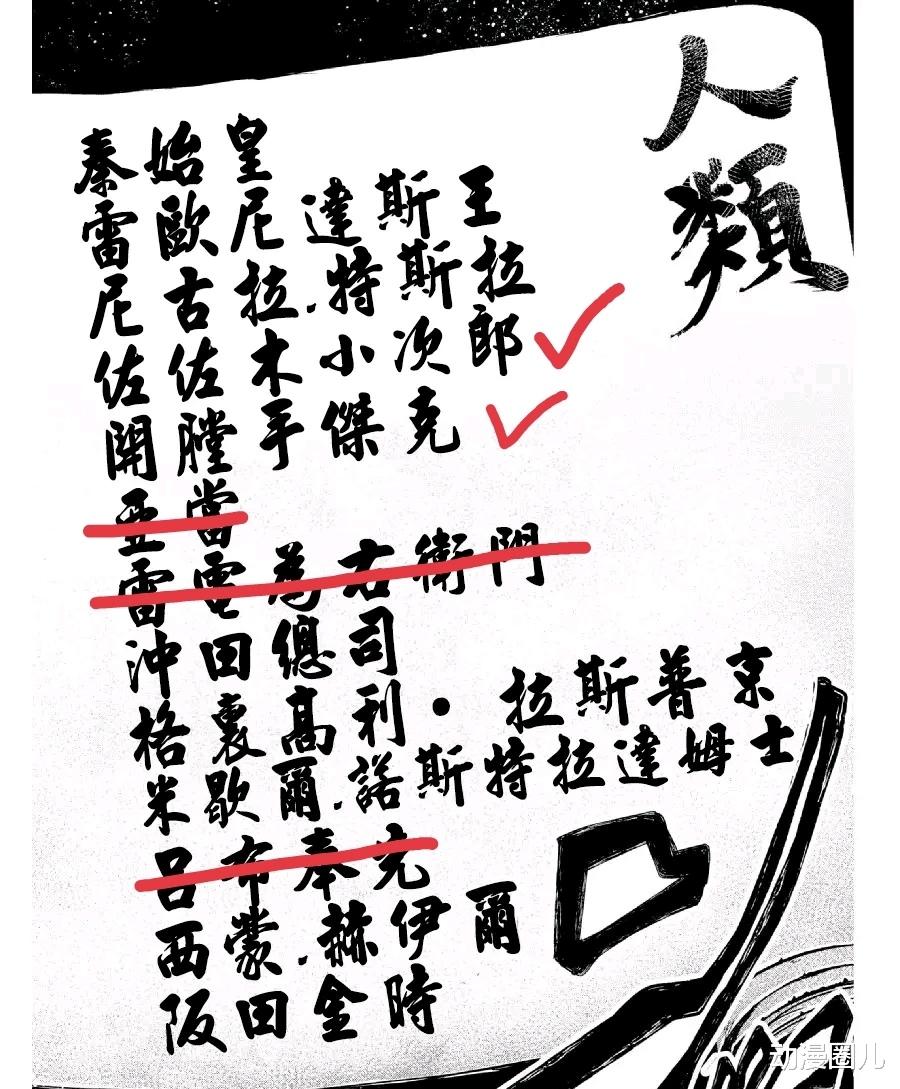 人類
秦始皇
雷歐尼達斯王
尼古拉.特斯拉
佐佐木小次郎
開膛手傑克
亞當
雷電為右衛門
沖田總司
格裏高利·拉斯普京
米歇爾.諾斯特拉達姆士
呂布奉先
西蒙.赫伊爾
阪田金時
动漫圈儿